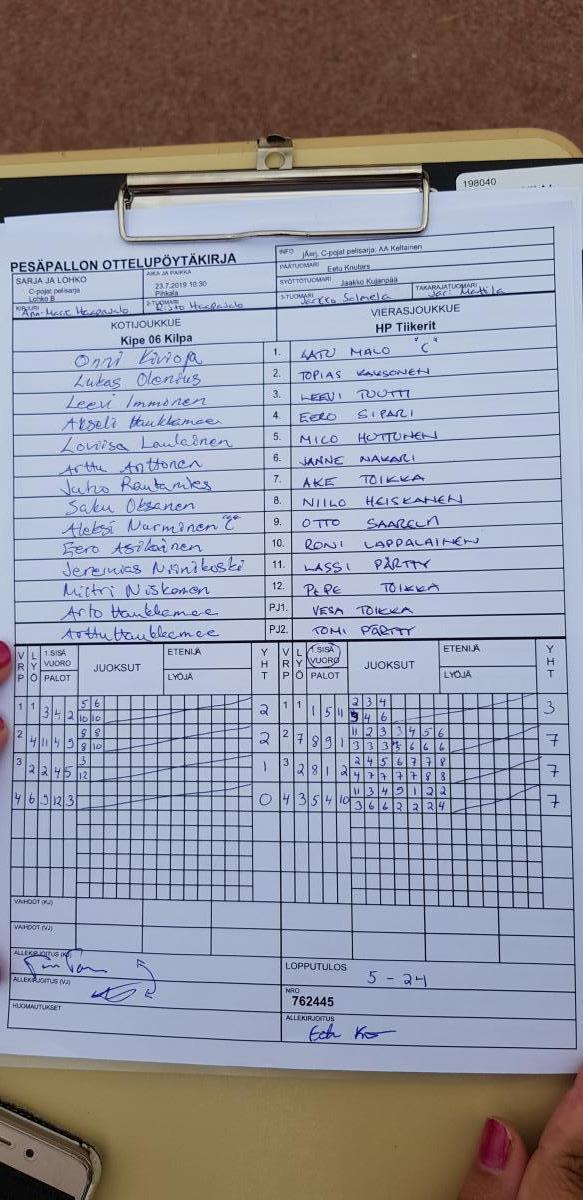 198040
PESÄPALLON OTTELUPÖYTÄKIRJA
INFO jAerj, C-pojat pelisarja: AA Keltainen
SARJA JA LOHKO
C-pojat pelisarja
Lohko B
AIKA JA PAIKKA
23.7.2019 10:30
Pihkala
PÄÄTUOMARI
Eetu Knuters
SYÖTTÖTUOMARI Jaakko Kujanpää
KIRJURI
2-TUOMARI
Risto Haapasalo
3-TUOMARI
Jarkko Salmela
TAKARAJATUOMARI
Jari Mattila
KOTIJOUKKUE
Kipe 06 Kilpa
VIERASJOUKKUE
HP Tiikerit
Onni Kivioja 1. LATU MALO "C"
Lukas Olenius 2. TOPIAS KAKSONEN
Leevi Immonen 3. LEEVI TUUTTI
Akseli Haukkamee 4. EERO SIPARI
Loviisa Laulainen 5. MICO HUTTUNEN
Arttu Anttonen 6. JANNE NAKARI
Juho Rautamies 7. AKE TOIKKA
Saku Oksanen 8. NIILO HEISKANEN
Aleksi Nurminen "C" 9. OTTO SAARELA
Eero Asikainen 10. RONI LAPPALAINEN
Jeremias Niinikoski 11. LASSI PÄRTTY
Miitri Niskanen 12. PEPE TOIKKA
Arto Haukkamee PJ1. VESA TOIKKA
Arttu Haukkamee PJ2. TOMI PÄRTTY
VRP LYÖ 1.SISÄ VUORO PALOT JUOKSUT ETENIJÄ LYÖJÄ YHT VRP LYÖ 1.SISÄ VUORO PALOT JUOKSUT ETENIJÄ LYÖJÄ YHT
1 1 3 4 2 5 6 2 1 1 1 5 11 2 3 4 3
10 10 4 6
2 4 11 4 9 8 2 2 7 8 9 1 11 2 3 3 4 5 6 7
8 10 3 3 3 3 6 6 6
3 2 2 4 5 3 1 3 2 8 1 2 2 4 5 6 7 7 8 7
12 4 7 7 7 7 8 8
4 6 9 12 3 0 4 3 5 4 10 11 3 4 9 1 2 2 7
3 6 6 2 2 2 4
VAIHDOT (KJ)
VAIHDOT (VJ)
ALLEKIRJOITUS (KJ)
LOPPUTULOS
5 - 24
ALLEKIRJOITUS (VJ)
NRO
762445
HUOMAUTUKSET
ALLEKIRJOITUS